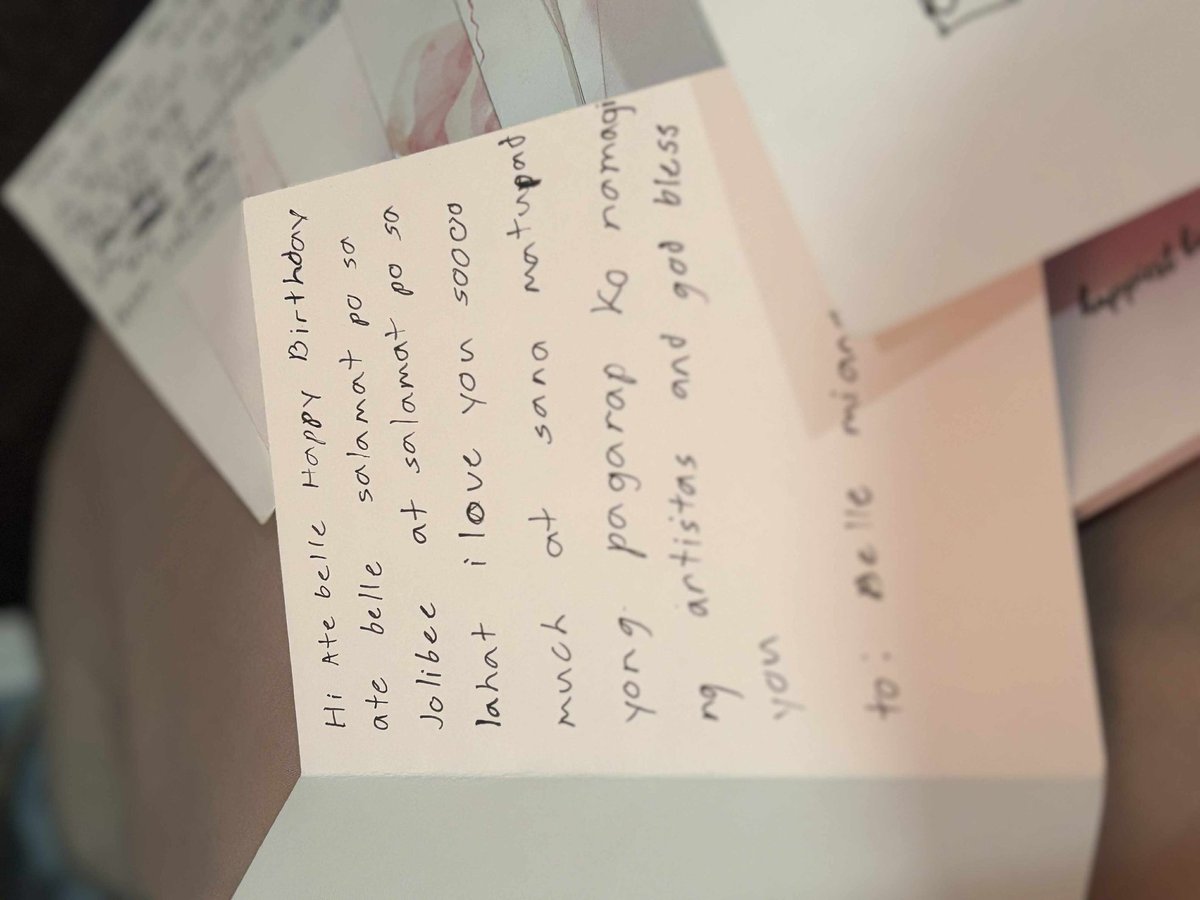 Hi Ate belle Happy Birthday
ate belle salamat po sa
Jolibee at salamat po sa
lahat i love you soooo
much at sana matupad
yong pagarap ko namagi
ng artistas and god bless
you
to: Belle